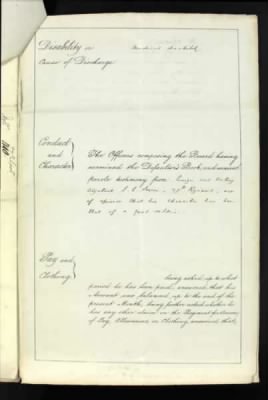 Disability or
Cause of Discharge
Conduct
and
Character
The Officers composing the Board having
examined the Defaulter's Book, and received
parole testimony from
Regiment, are
of opinion that his character has been
that of a good soldier.
Pay and
Clothing
being asked, up to what
period he has been paid, answered, that his
Account was balanced, up to the end of the
present Month; being further asked whether he
has any other claim on the Regiment for Arrears
of Pay, Allowances, or Clothing, answered, that,